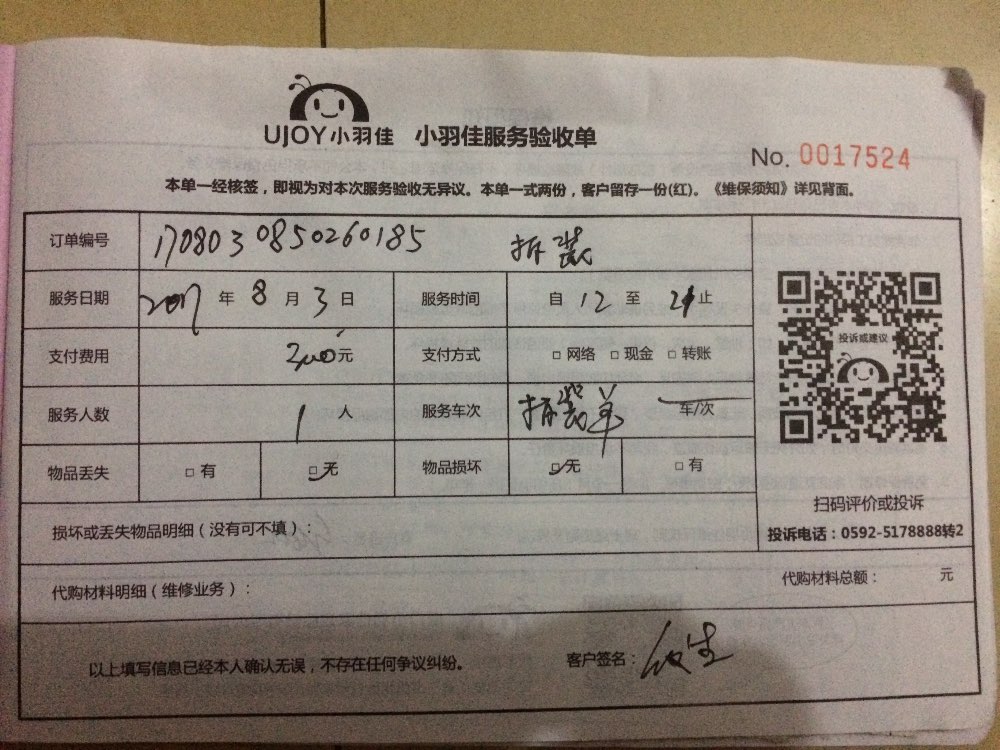 UJOY小羽佳 小羽佳服务验收单
No. 0017524
本单一经核签，即视为对本次服务验收无异议。本单一式两份，客户留存一份(红)。《维保须知》详见背面。
订单编号 170803 0850260185 拆装
服务日期 2017年8月3日 服务时间 自12至21止
支付费用 200元 支付方式 □网络 □现金 □转账
投诉或建议
服务人数 1人 服务车次 拆装单 车/次
物品丢失 □有 □无 物品损坏 □无 □有
扫码评价或投诉
损坏或丢失物品明细（没有可不填）：
投诉电话：0592-5178888转2
代购材料明细（维修业务）： 代购材料总额： 元
以上填写信息已经本人确认无误，不存在任何争议纠纷。 客户签名：